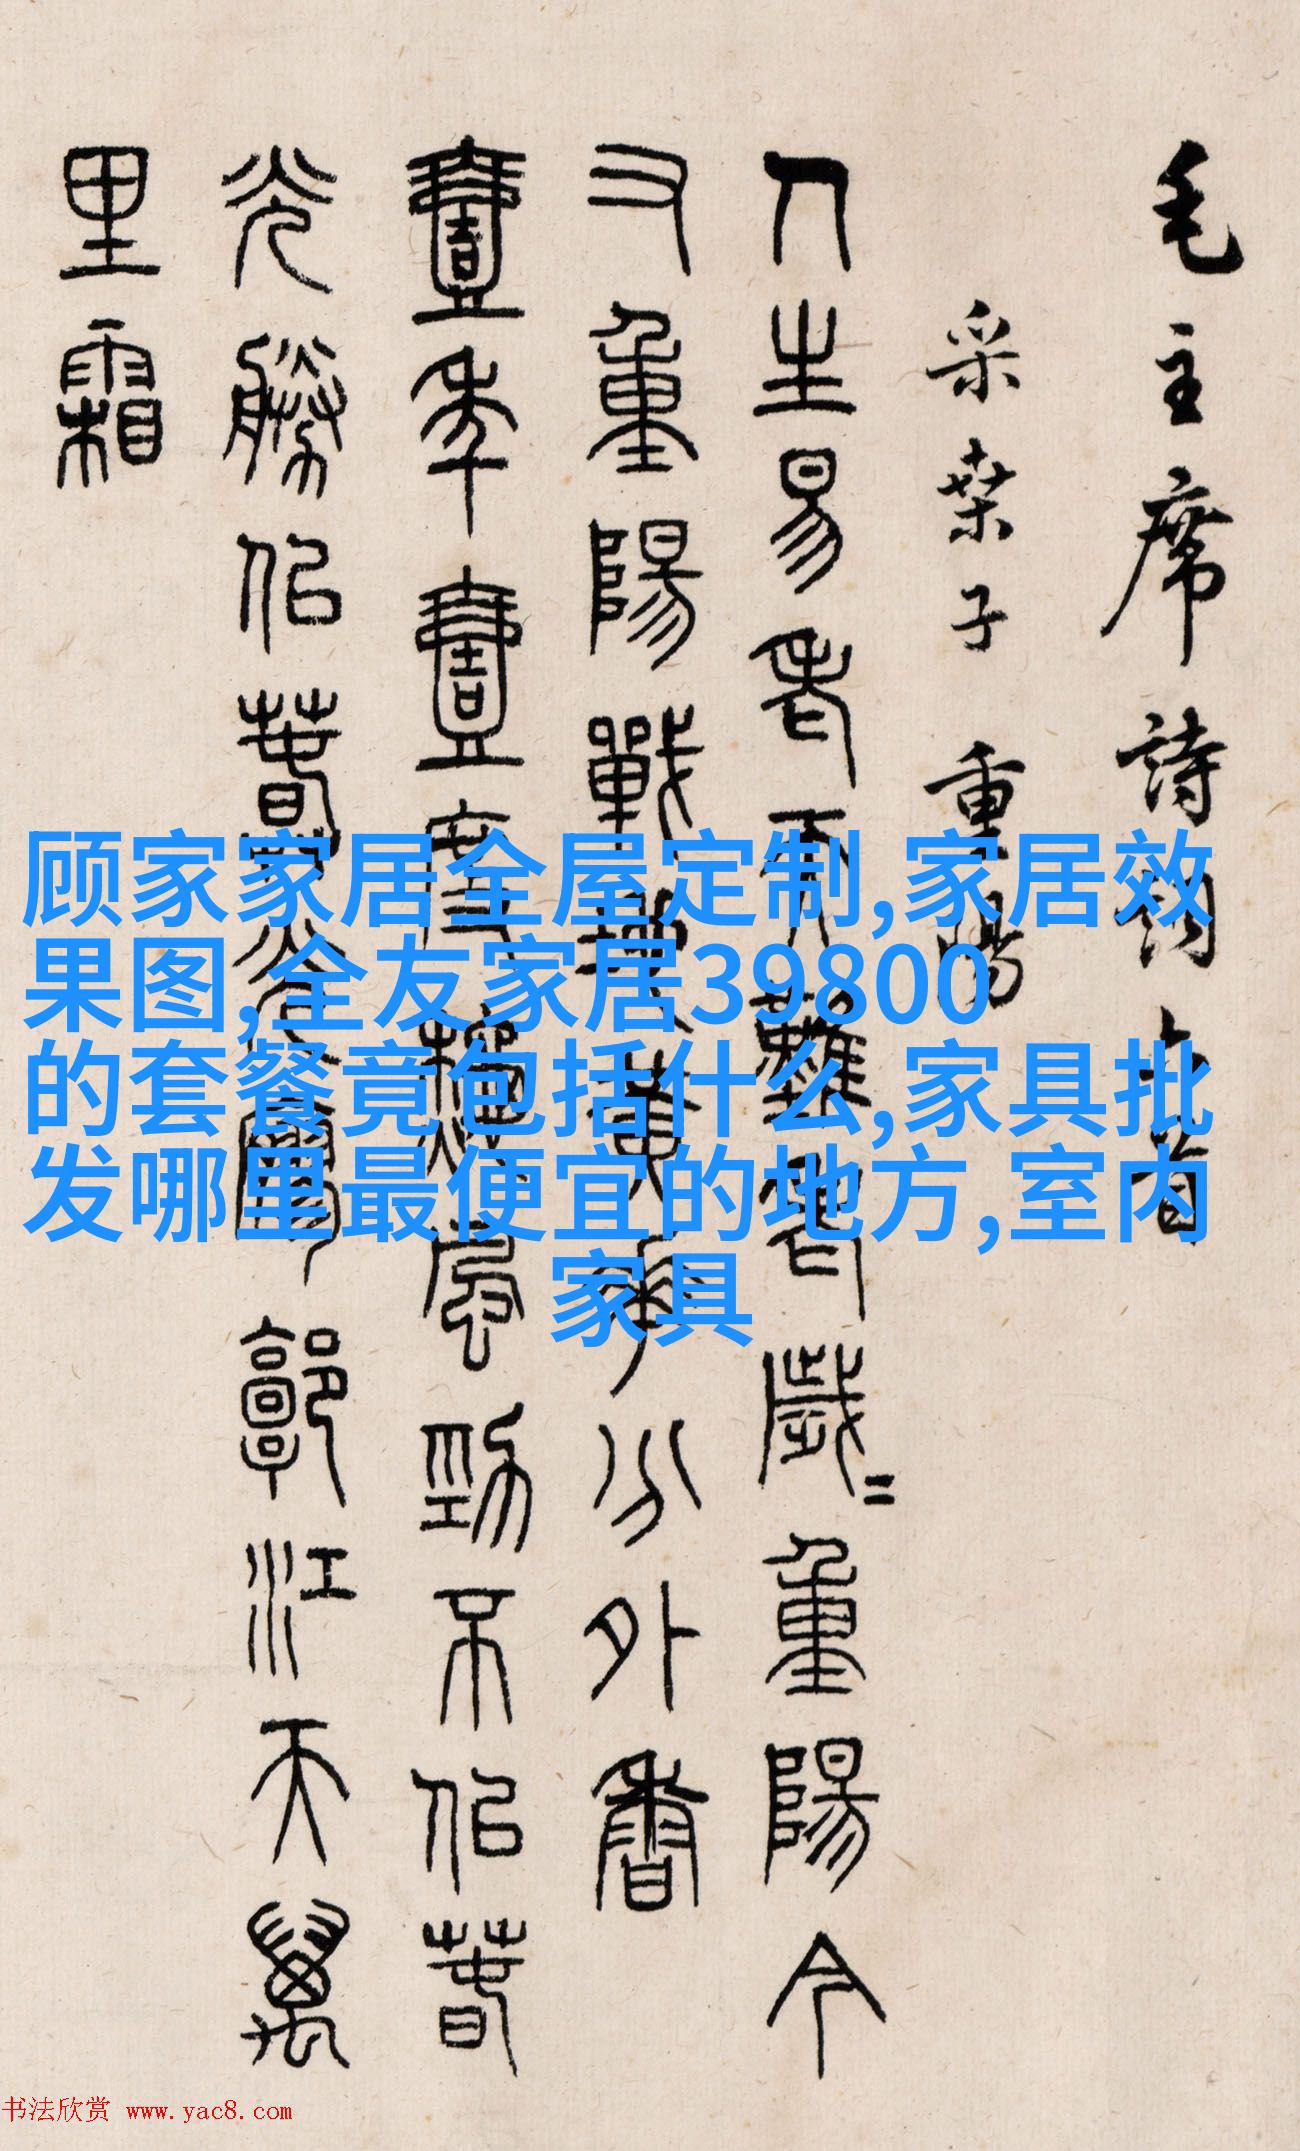 毛主席詩詞首
采桑子 重陽
人生易老天難老歲=重陽今
又重陽戰地黃華分外香
壹年壹度秋風勁不似春
光勝似春光寥郭江天萬
里霜
顾家家居全屋定制,家居效
果图,全友家居39800
的套餐竟包括什么,家具批
发哪里最便宜的地方,室内
家具
书法欣赏 www.yac8.com